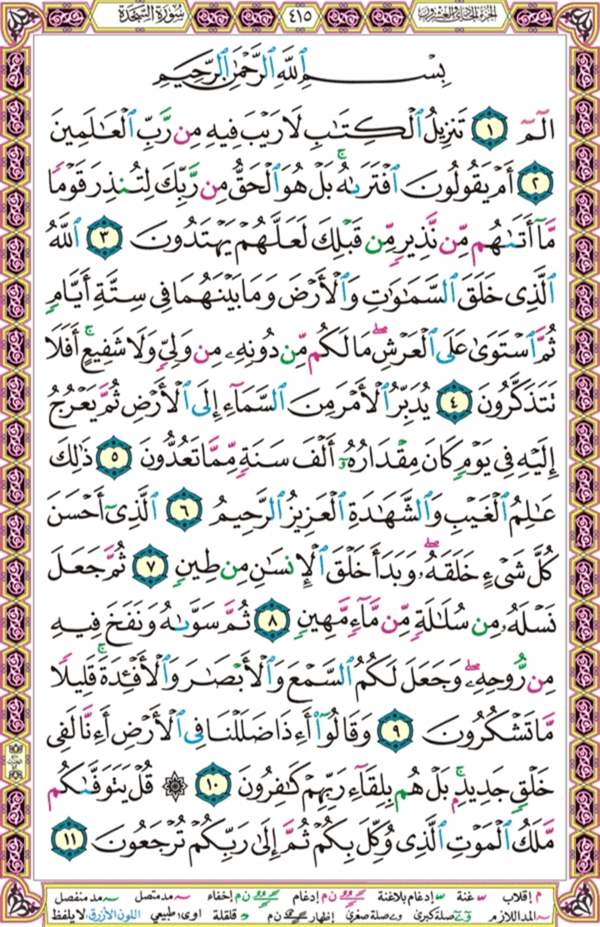 سُورَةُ السَّجْدَة
٤١٥
الجزء الحادي والعشرون
بِسْمِ ٱللَّهِ ٱلرَّحْمَٰنِ ٱلرَّحِيمِ
الٓمٓ ١ تَنزِيلُ ٱلْكِتَٰبِ لَا رَيْبَ فِيهِ مِن رَّبِّ ٱلْعَٰلَمِينَ
٢ أَمْ يَقُولُونَ ٱفْتَرَىٰهُ ۚ بَلْ هُوَ ٱلْحَقُّ مِن رَّبِّكَ لِتُنذِرَ قَوْمًا
مَّآ أَتَىٰهُم مِّن نَّذِيرٍ مِّن قَبْلِكَ لَعَلَّهُمْ يَهْتَدُونَ ٣ ٱللَّهُ
ٱلَّذِى خَلَقَ ٱلسَّمَٰوَٰتِ وَٱلْأَرْضَ وَمَا بَيْنَهُمَا فِى سِتَّةِ أَيَّامٍ
ثُمَّ ٱسْتَوَىٰ عَلَى ٱلْعَرْشِ ۖ مَا لَكُم مِّن دُونِهِۦ مِن وَلِىٍّ وَلَا شَفِيعٍ ۚ أَفَلَا
تَتَذَكَّرُونَ ٤ يُدَبِّرُ ٱلْأَمْرَ مِنَ ٱلسَّمَآءِ إِلَى ٱلْأَرْضِ ثُمَّ يَعْرُجُ
إِلَيْهِ فِى يَوْمٍ كَانَ مِقْدَارُهُۥٓ أَلْفَ سَنَةٍ مِّمَّا تَعُدُّونَ ٥ ذَٰلِكَ
عَٰلِمُ ٱلْغَيْبِ وَٱلشَّهَٰدَةِ ٱلْعَزِيزُ ٱلرَّحِيمُ ٦ ٱلَّذِىٓ أَحْسَنَ
كُلَّ شَىْءٍ خَلَقَهُۥ ۖ وَبَدَأَ خَلْقَ ٱلْإِنسَٰنِ مِن طِينٍ ٧ ثُمَّ جَعَلَ
نَسْلَهُۥ مِن سُلَٰلَةٍ مِّن مَّآءٍ مَّهِينٍ ٨ ثُمَّ سَوَّىٰهُ وَنَفَخَ فِيهِ
مِن رُّوحِهِۦ ۖ وَجَعَلَ لَكُمُ ٱلسَّمْعَ وَٱلْأَبْصَٰرَ وَٱلْأَفْـِٔدَةَ ۚ قَلِيلًا
مَّا تَشْكُرُونَ ٩ وَقَالُوٓا۟ أَءِذَا ضَلَلْنَا فِى ٱلْأَرْضِ أَءِنَّا لَفِى
خَلْقٍ جَدِيدٍ ۚ بَلْ هُم بِلِقَآءِ رَبِّهِمْ كَٰفِرُونَ ١٠ ۞ قُلْ يَتَوَفَّىٰكُم
مَّلَكُ ٱلْمَوْتِ ٱلَّذِى وُكِّلَ بِكُمْ ثُمَّ إِلَىٰ رَبِّكُمْ تُرْجَعُونَ ١١
م إقلاب س غنة إدغام بلاغنة ن م إدغام ن م إخفاء مد متصل مد منفصل
المد اللازم صلة كبرى صلة صغرى إظهار ن م قلقلة اوى: طبيعي اللون الأزرق: لا يلفظ